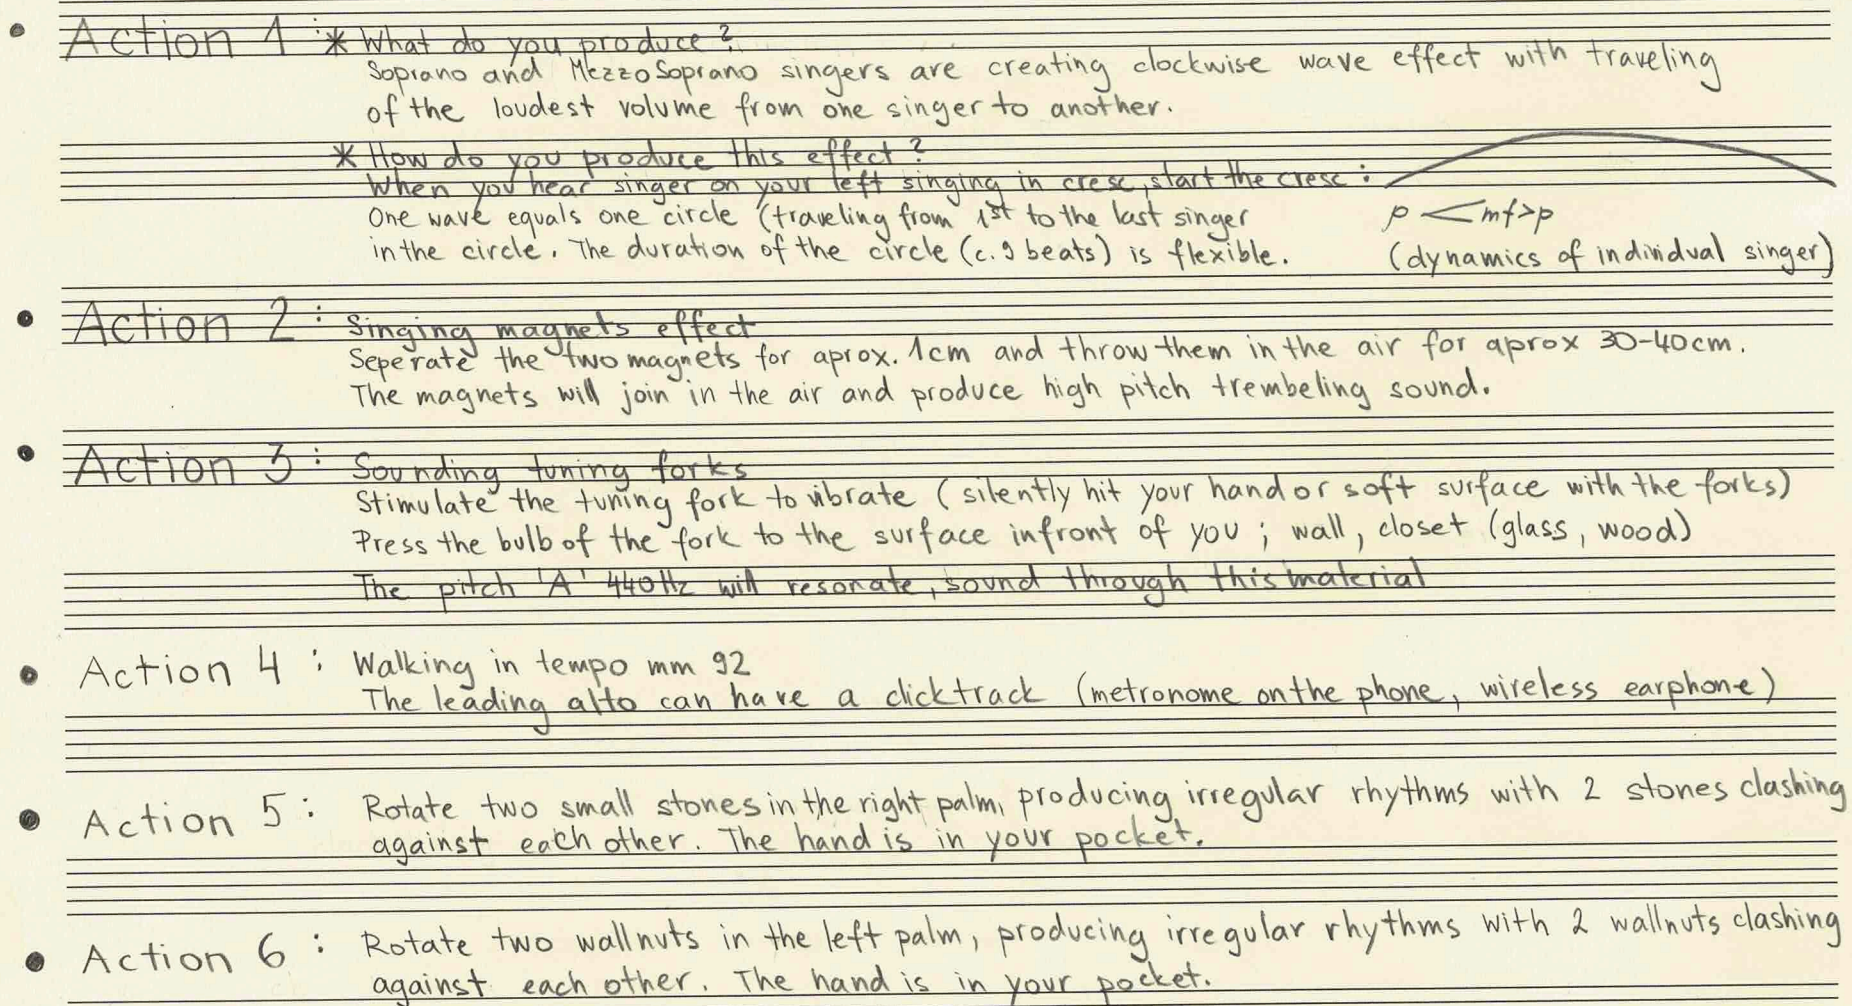 Action 1 : * What do you produce ?
Soprano and MezzoSoprano singers are creating clockwise wave effect with traveling
of the loudest volume from one singer to another.
* How do you produce this effect ?
When you hear singer on your left singing in cresc, start the cresc :
One wave equals one circle (traveling from 1st to the last singer
p < mf > p
in the circle. The duration of the circle (c. 9 beats) is flexible.
(dynamics of individual singer)
Action 2 : Singing magnets effect
Seperate the two magnets for aprox. 1cm and throw them in the air for aprox 30-40cm.
The magnets will join in the air and produce high pitch trembeling sound.
Action 3 : Sounding tuning forks
Stimulate the tuning fork to vibrate (silently hit your hand or soft surface with the forks)
Press the bulb of the fork to the surface infront of you ; wall, closet (glass, wood)
The pitch 'A' 440Hz will resonate, sound through this material
Action 4 : Walking in tempo mm 92
The leading alto can have a clicktrack (metronome on the phone, wireless earphone)
Action 5 : Rotate two small stones in the right palm, producing irregular rhythms with 2 stones clashing
against each other. The hand is in your pocket.
Action 6 : Rotate two wallnuts in the left palm, producing irregular rhythms with 2 wallnuts clashing
against each other. The hand is in your pocket.